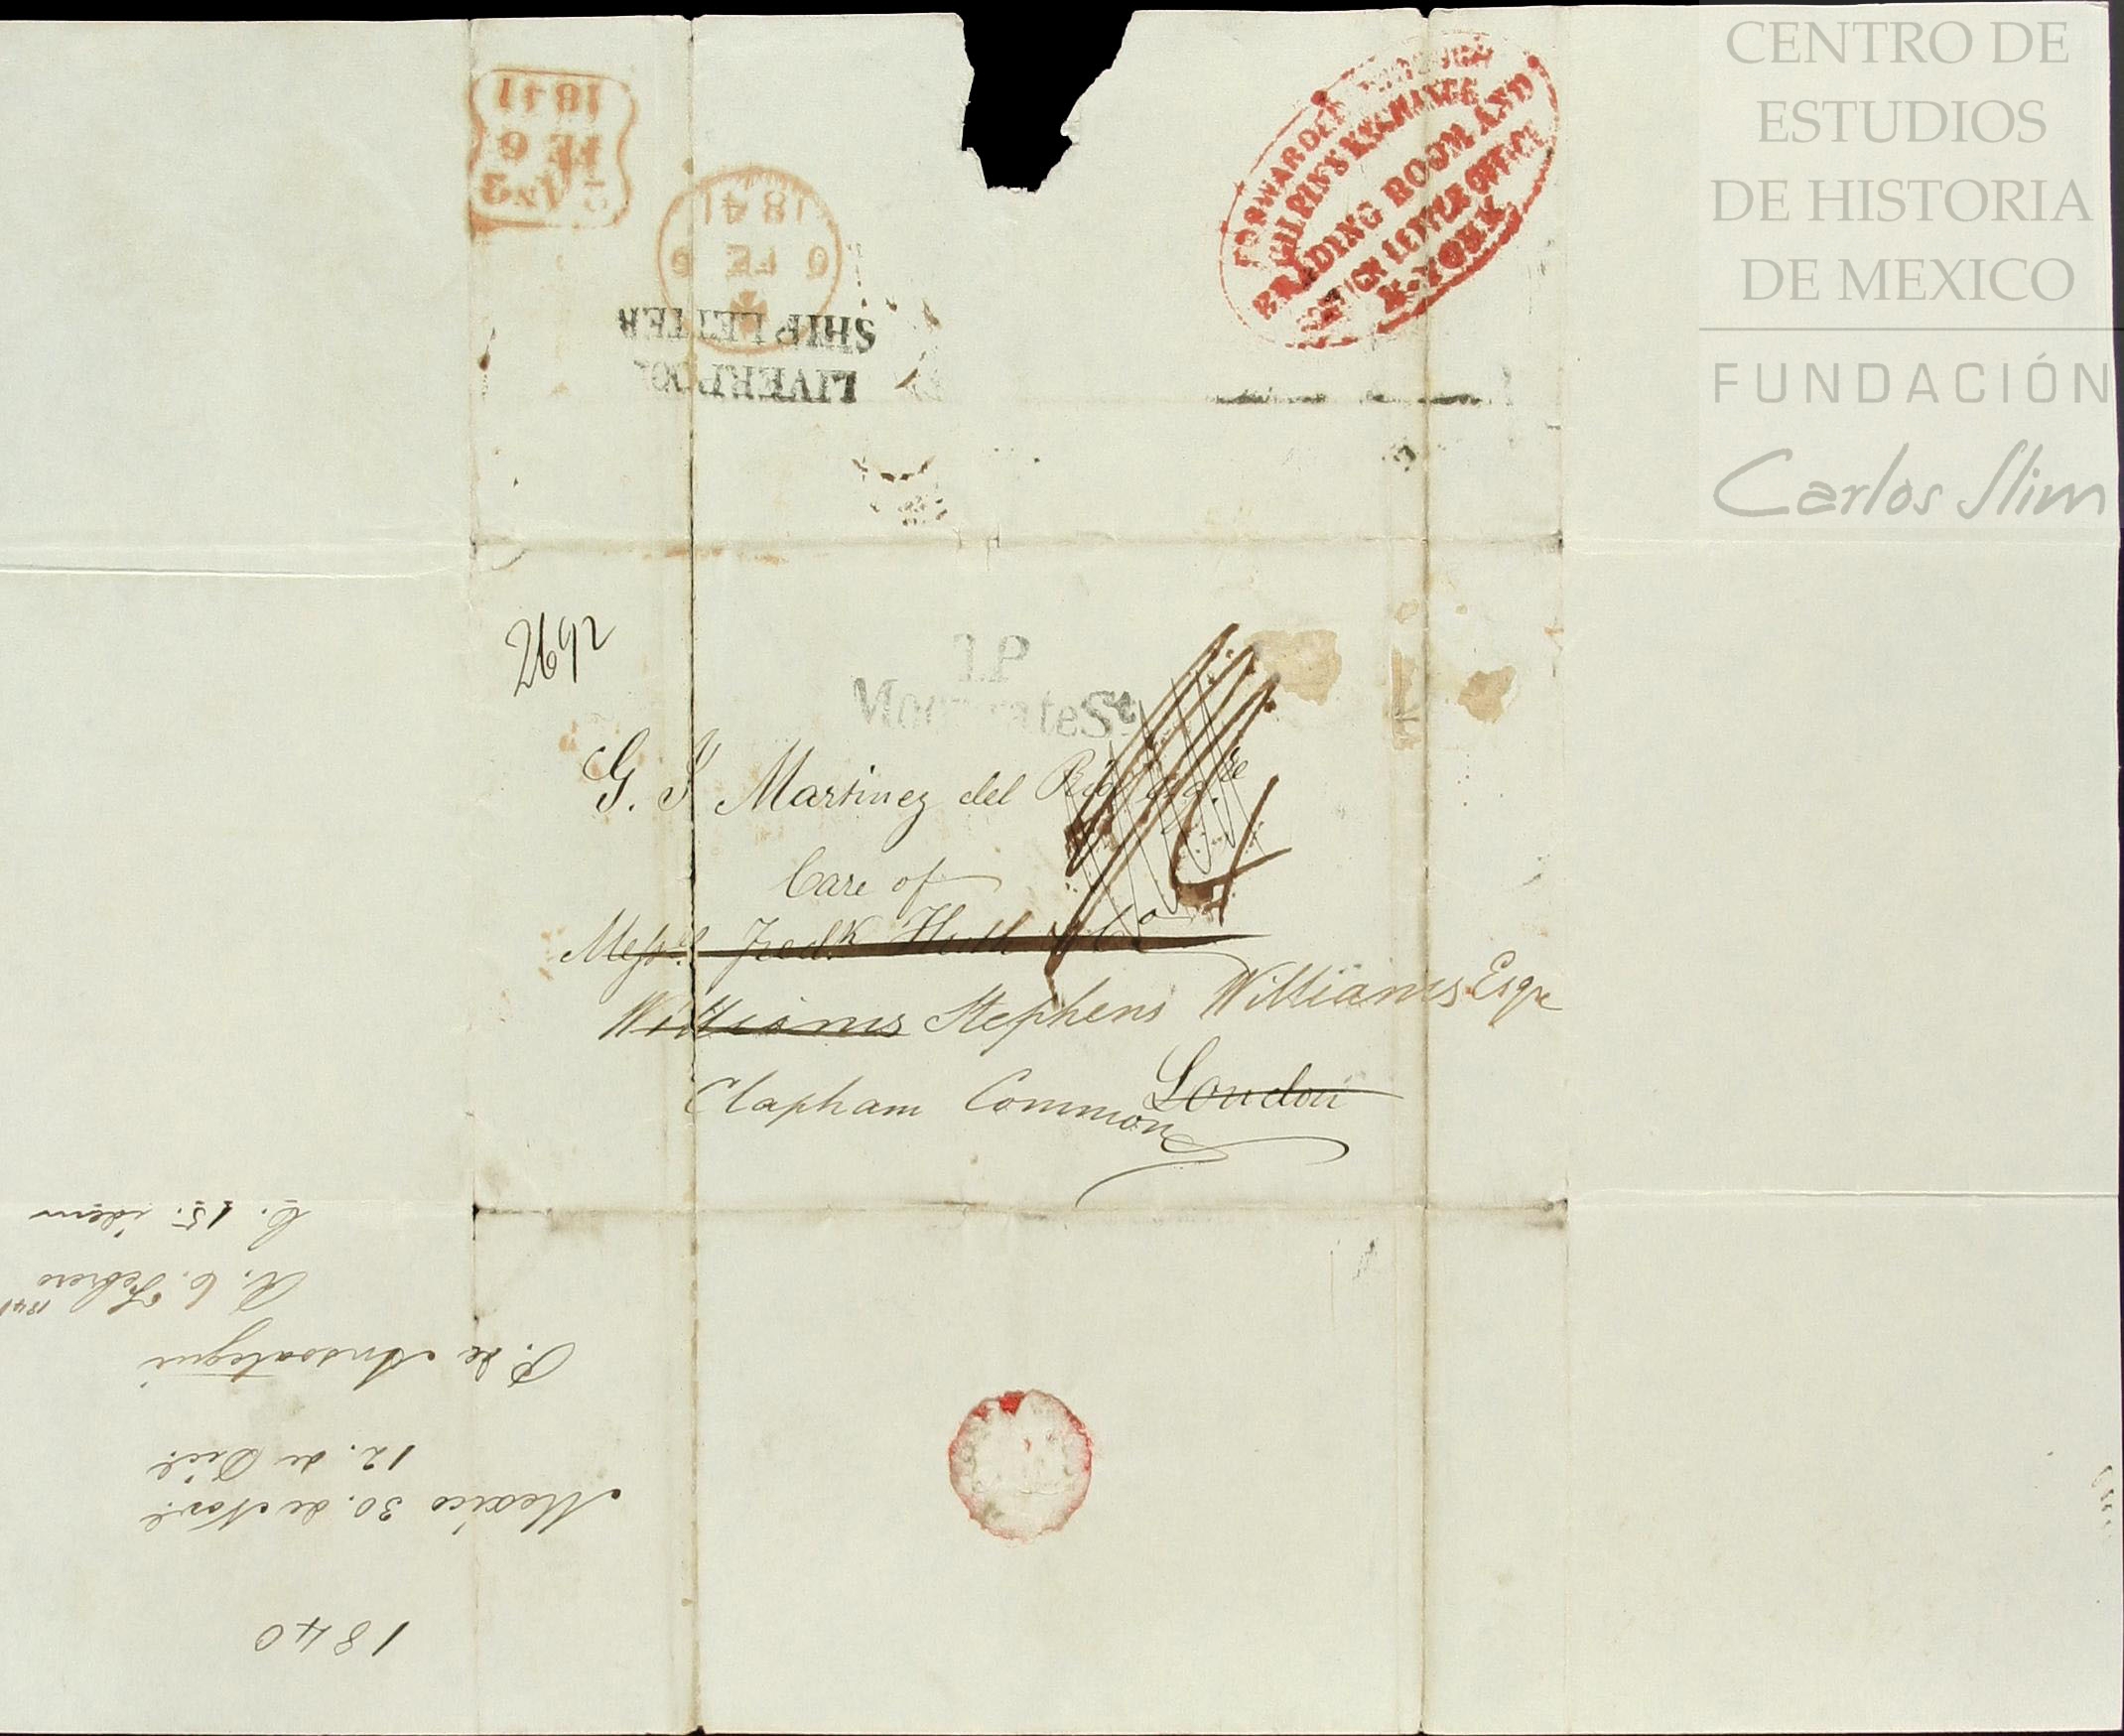 CENTRO DE
ESTUDIOS
DE HISTORIA
DE MEXICO
FUNDACIÓN
Carlos Slim
1841
FE 6
1841
FE 6
LIVERPOOL
SHIP LETTER
FORWARDED THROUGH
GILPIN'S EXCHANGE
READING ROOM AND
LETTER OFFICE
N. YORK
2692
T.P
Moorgate St
G. J Martinez del Rio Esq.re
Care of
Messrs Fredk Huth & Co
Williams Stephens Williams Esqre
London
Clapham Common
1840
Mexico 30. de Nov.e
12. de Dic.e
P. de Ansoategui
R. 6. Febrero 1841
C. 15. idem